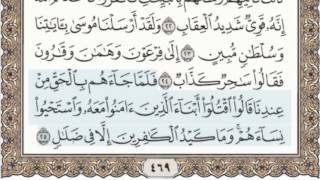 إِنَّهُۥ قَوِىٌّ شَدِيدُ ٱلْعِقَابِ ٢٢ وَلَقَدْ أَرْسَلْنَا مُوسَىٰ بِـَٔايَٰتِنَا
وَسُلْطَٰنٍ مُّبِينٍ ٢٣ إِلَىٰ فِرْعَوْنَ وَهَٰمَٰنَ وَقَٰرُونَ
فَقَالُوا۟ سَٰحِرٌ كَذَّابٌ ٢٤ فَلَمَّا جَآءَهُم بِٱلْحَقِّ مِنْ
عِندِنَا قَالُوا۟ ٱقْتُلُوٓا۟ أَبْنَآءَ ٱلَّذِينَ ءَامَنُوا۟ مَعَهُۥ وَٱسْتَحْيُوا۟
نِسَآءَهُمْ ۚ وَمَا كَيْدُ ٱلْكَٰفِرِينَ إِلَّا فِى ضَلَٰلٍ ٢٥
٤٦٩